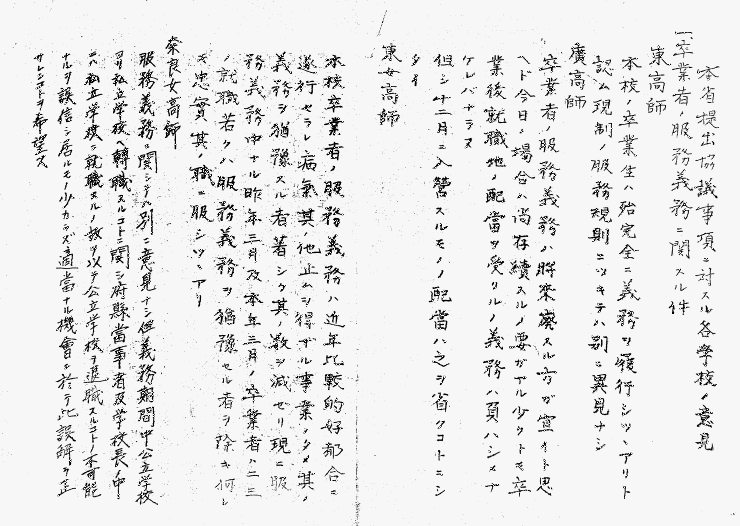 本省提出協議事項ニ対スル各学校ノ意見
一、卒業者ノ服務義務ニ関スル件
東高師
本校ノ卒業生ハ殆完全ニ義務ヲ履行シツヽアリト
認ム現制ノ服務規則ニツキテハ別ニ異見ナシ
廣高師
卒業者ノ服務義務ハ将来廃スル方ガ宜イト思
ヘド今日ノ場合ハ尚存続スルノ要ガアル少クトモ卒
業後就職地ノ配當ヲ受クルノ義務ハ負ハシメナ
ケレバナラヌ
但シ十二月ニ入營スルモノノ配當ハ之ヲ省クコトニシ
タイ
東女高師
本校卒業者ノ服務義務ハ近年比較的好都合ニ
遂行セラレ病氣其ノ他止ムヲ得ザル事業ノタメ其ノ
義務ヲ猶豫スル者著シク其ノ数ヲ減ゼリ現ニ服
務義務中ナル昨年三月及本年三月ノ卒業者ハ二三
ノ就職若クハ服務義務ヲ猶豫セル者ヲ除キ何レ
モ忠實其ノ職ニ服シツヽアリ
奈良女高師
服務義務ニ関シテハ別ニ意見ナシ但義務期間中公立学校
ヨリ私立学校ヘ轉職スルコトニ関シ府縣當事者及学校長ノ中
ニハ私立学校ニ就職スルノ故ヲ以テ公立学校ヲ退職スルコトノ不可能
ナルヲ誤信シ居ルモノ少カラズ適當ナル機會ニ於テ此誤解ヲ正
サレンコトヲ希望ス